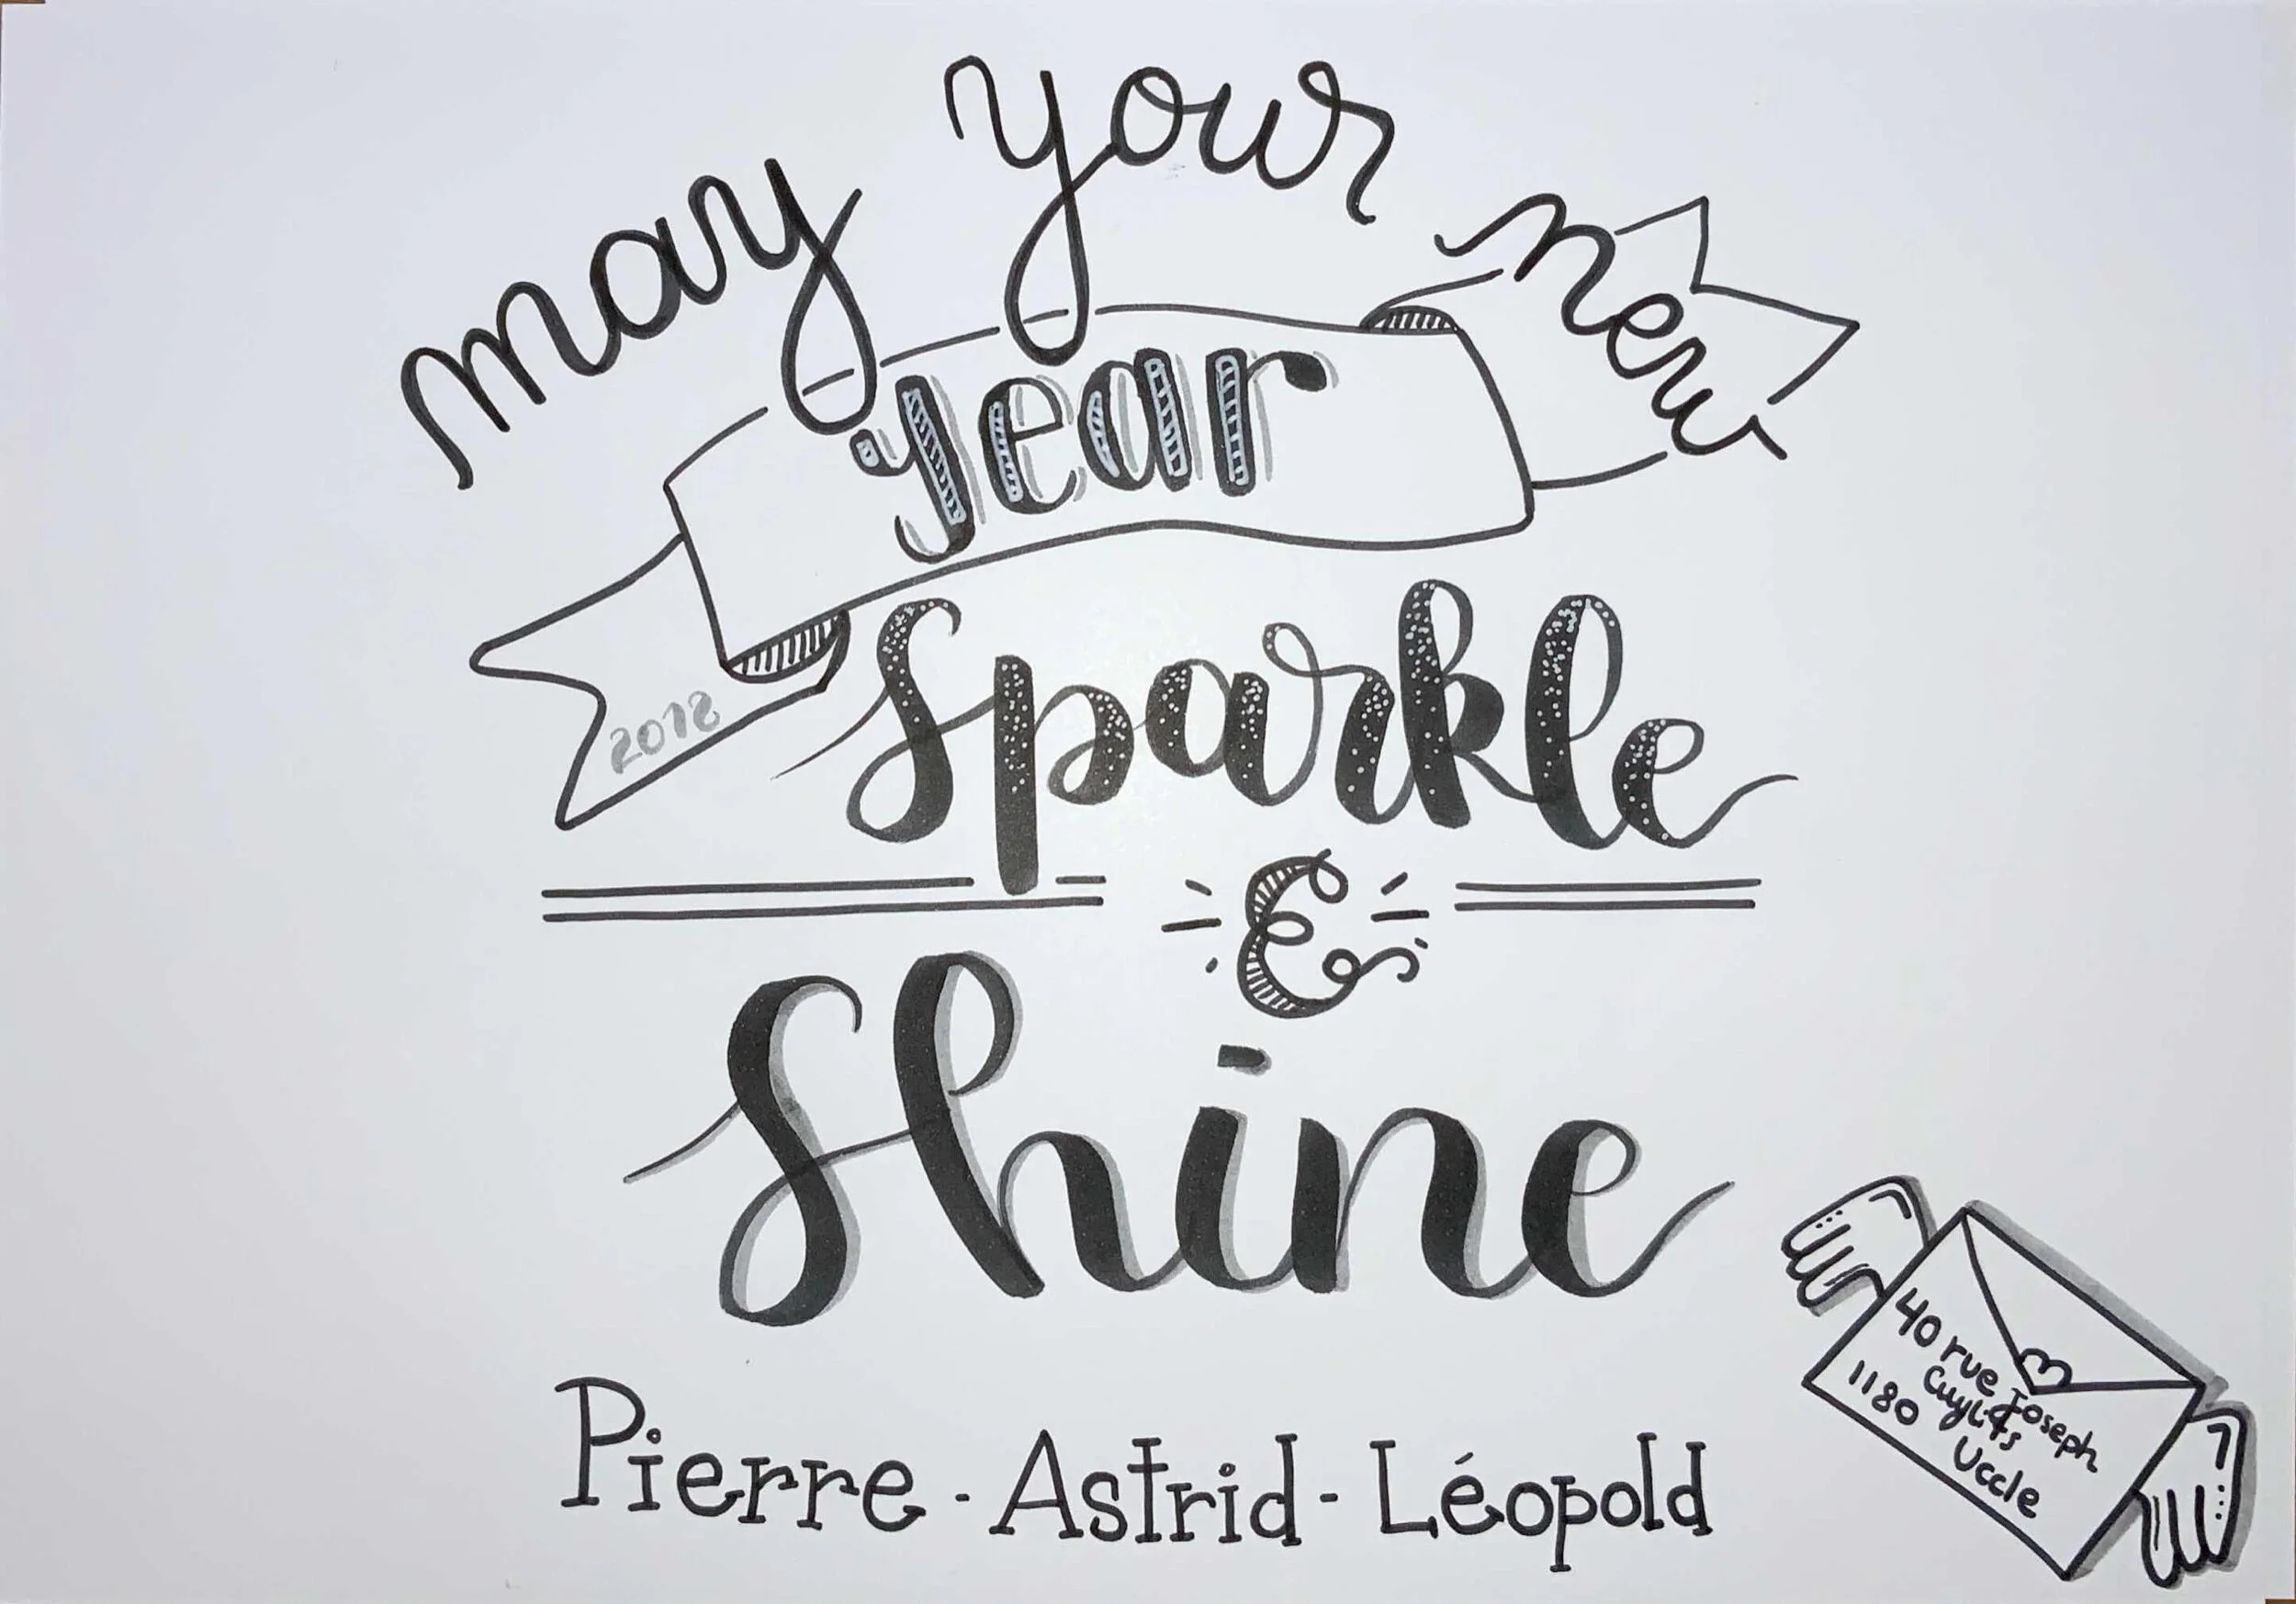 may your new
year
2012
Sparkle
&
Shine
Pierre - Astrid - Léopold
40 rue Joseph
1180 Uccle